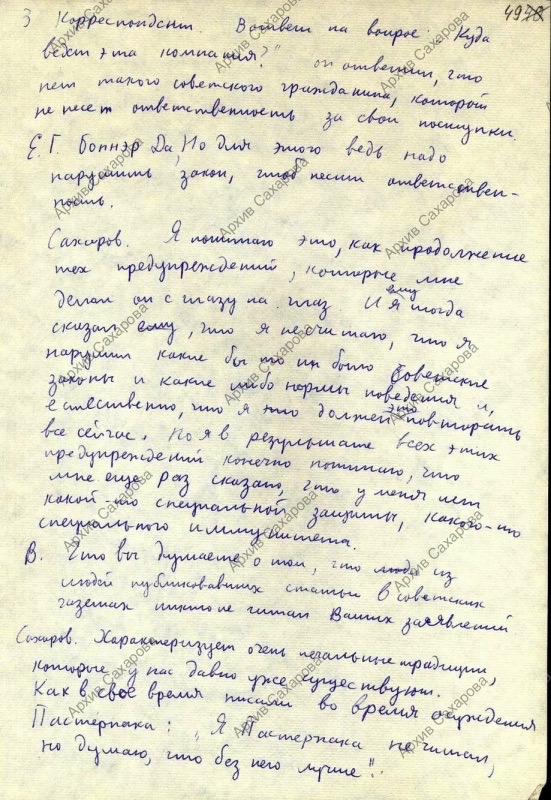 49
3 Корреспондент. В ответ на вопрос: „Куда
ведет эта компания?" он ответил, что
нет такого советского гражданина, который
не несет ответственность за свои поступки.
Е.Г. Боннэр Да, Но для этого ведь надо
нарушить закон, чтоб нести ответствен-
ность.
Сахаров. Я понимаю это, как продолжение
тех предупреждений, которые мне
делал он с глазу на глаз. И я ему тогда
сказал, что я не считаю, что я
нарушил какие бы то ни было советские
законы и какие либо нормы поведения и,
естественно, что я это должен повторить
все сейчас. Но я в результате всех этих
предупреждений конечно понимаю, что
мне еще раз сказано, что у меня нет
какой-то специальной защиты, какого-то
специального иммунитета.
В. Что вы думаете о том, что из
людей публиковавших статьи в советских
газетах никто не читал Ваших заявлений
Сахаров. Характеризует очень печальные традиции,
которые у нас давно уже существуют.
Как в свое время писали во время осуждения
Пастернака: „Я Пастернака не читал,
но думаю, что без него лучше".
Архив Сахарова